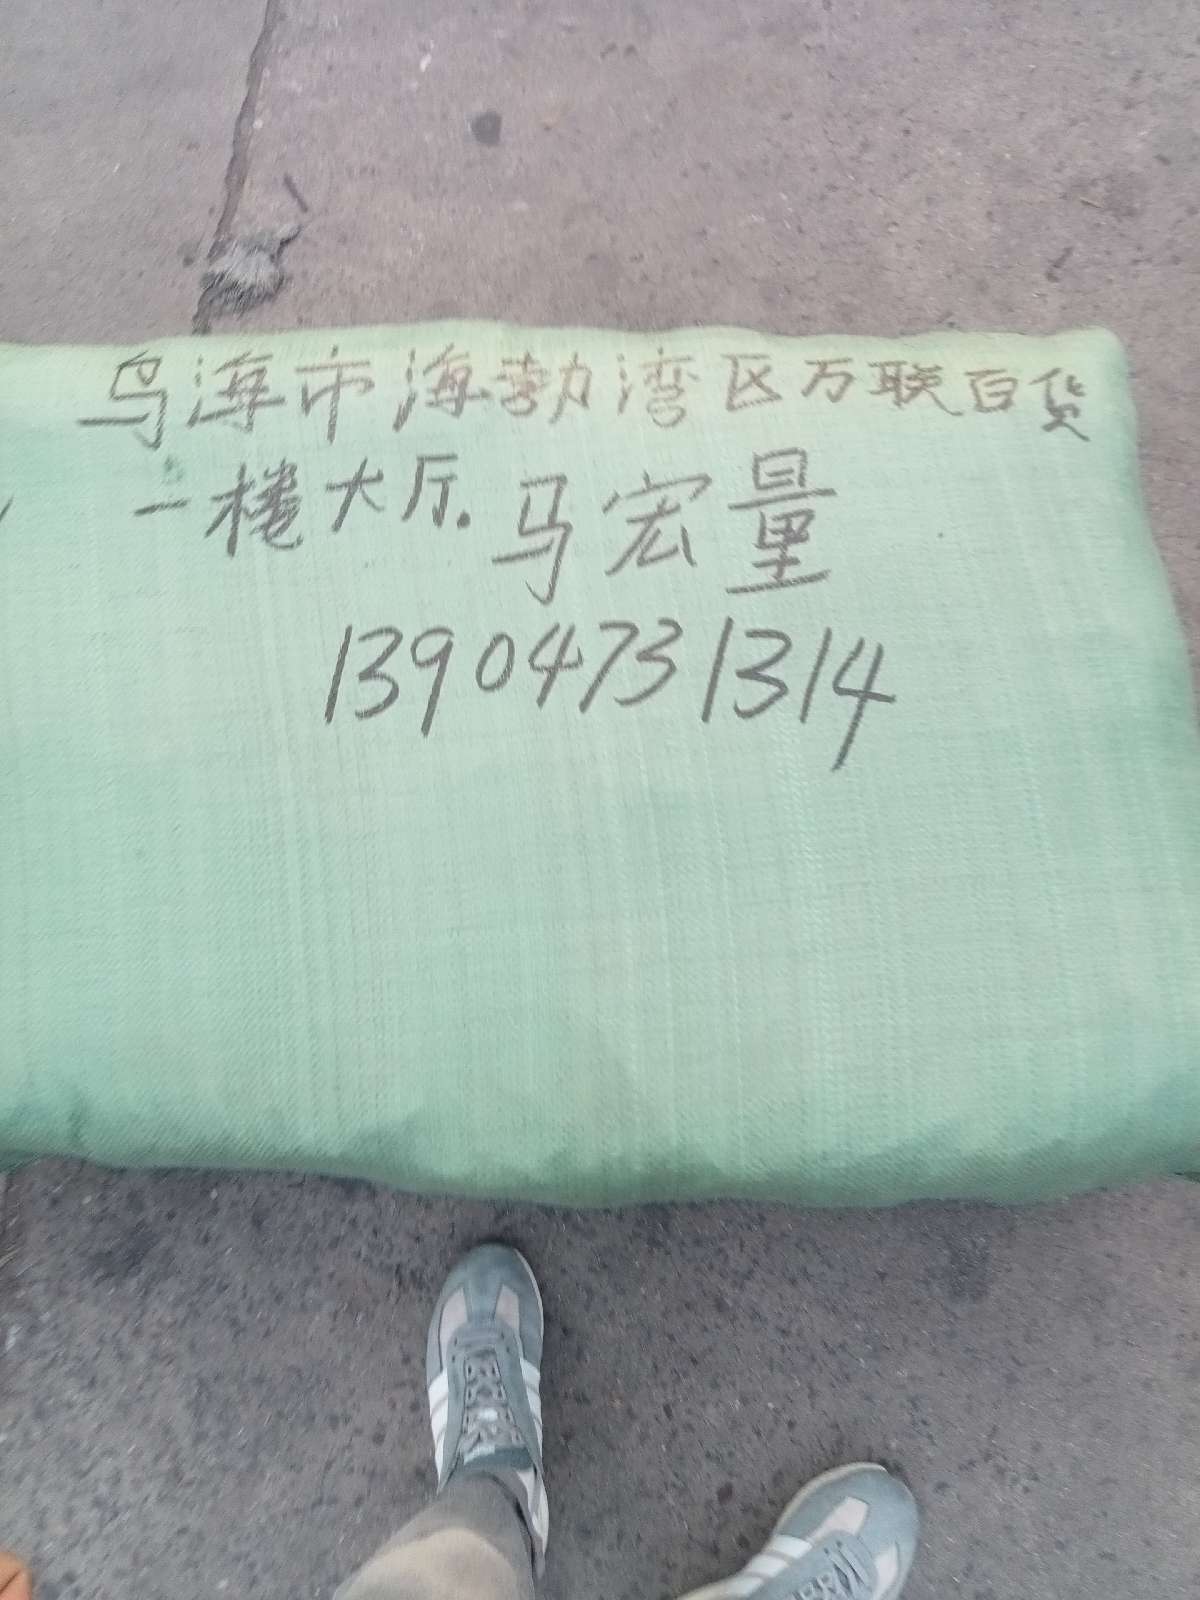 乌海市海勃湾区万联百货
一楼大厅.马宏量
13904731314